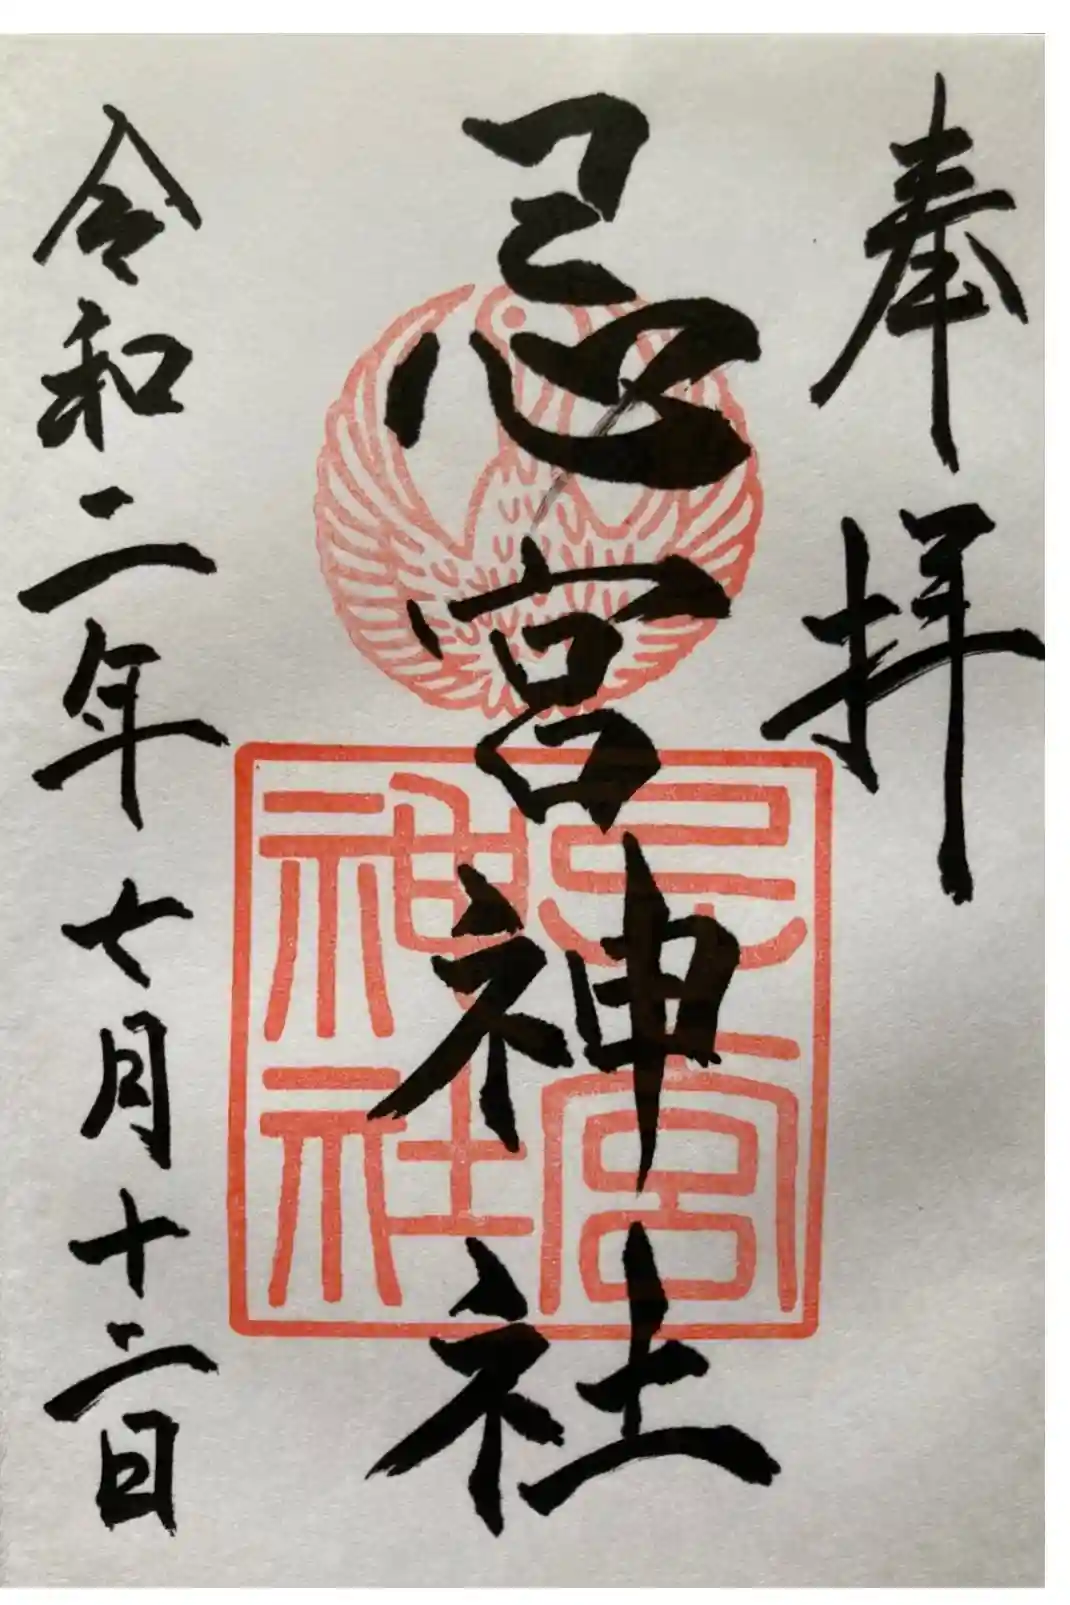 奉拝
忌宮神社
忌宮神社
令和二年七月十二日